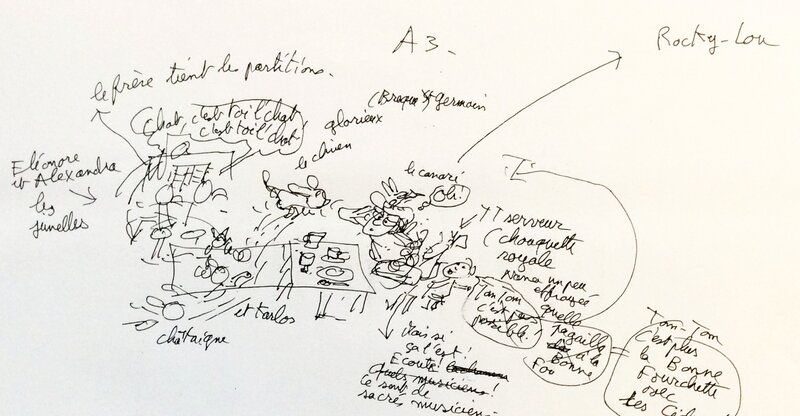 A3.
Rocky-Lou
le frère tient les partitions.
(Braque St Germain
glorieux
le chien
Chat, c'est toi l'chat,
c'est toi l'chat
Eléonore
et Alexandra
les jumelles
le canari
Oh!
serveur
(chouquette
royale
nana un peu
effrayée
quelle
pagaille
à la
Bonne
Fou
Tom-Tom
c'est pas
possible!
Tom-Tom
C'est plus
la Bonne
Fourchette
avec
et Carlos
chataigne
Mais si
ça l'est!
Ecoute
Quels musiciens!
ce sont de
sacrés musiciens